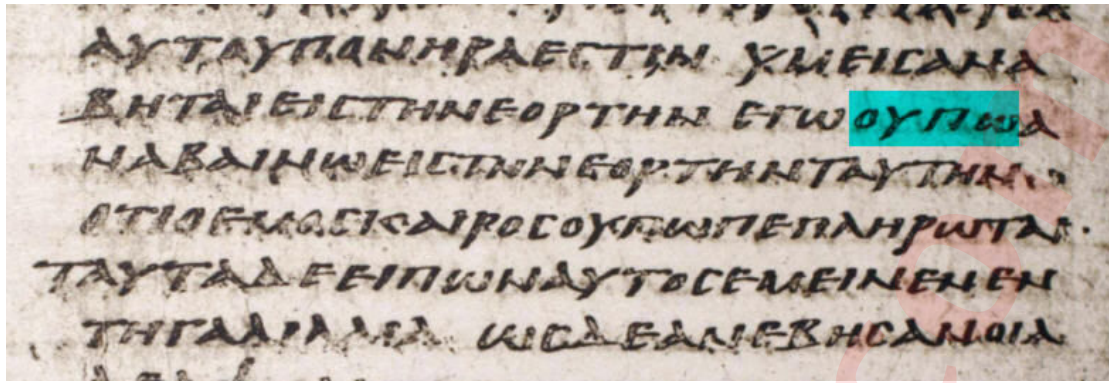 ΑΥΤΟΥΠΟΝΗΡΑΕϹΤΙΝ ΥΜΕΙϹΑΝΑ
ΒΗΤΑΙΕΙϹΤΗΝΕΟΡΤΗΝ ΕΓΩΟΥΠΩΑ
ΝΑΒΑΙΝΩΕΙϹΤΗΝΕΟΡΤΗΝΤΑΥΤΗΝ
ΟΤΙΟΕΜΟϹΚΑΙΡΟϹΟΥΠΩΠΕΠΛΗΡΩΤΑΙ·
ΤΑΥΤΑΔΕΕΙΠΩΝΑΥΤΟϹΕΜΕΙΝΕΝΕΝ
ΤΗΓΑΛΙΛΑΙΑ ΩϹΔΕΑΝΕΒΗϹΑΝΟΙΑ